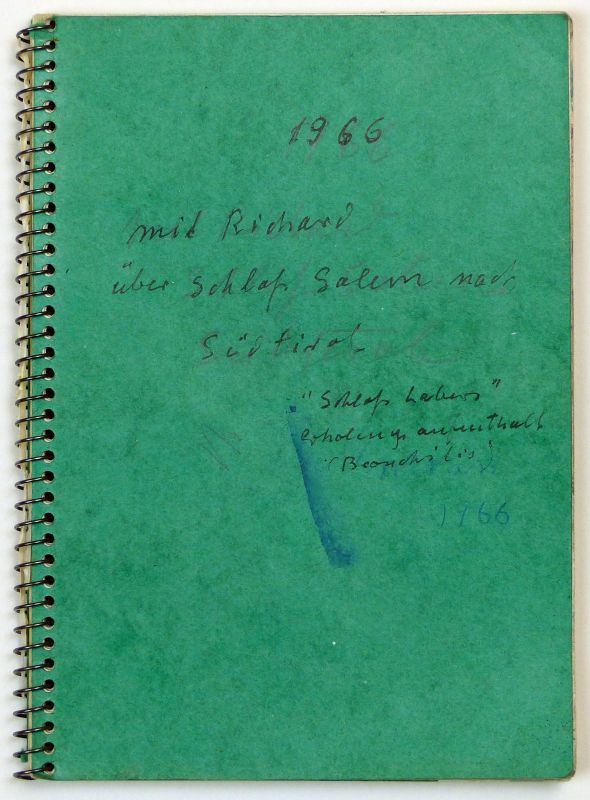 1966
mit Richard
über Schloß Salem nach
Südtirol
"Schloß Labers"
Erholungsaufenthalt
(Bronchitis)
1966